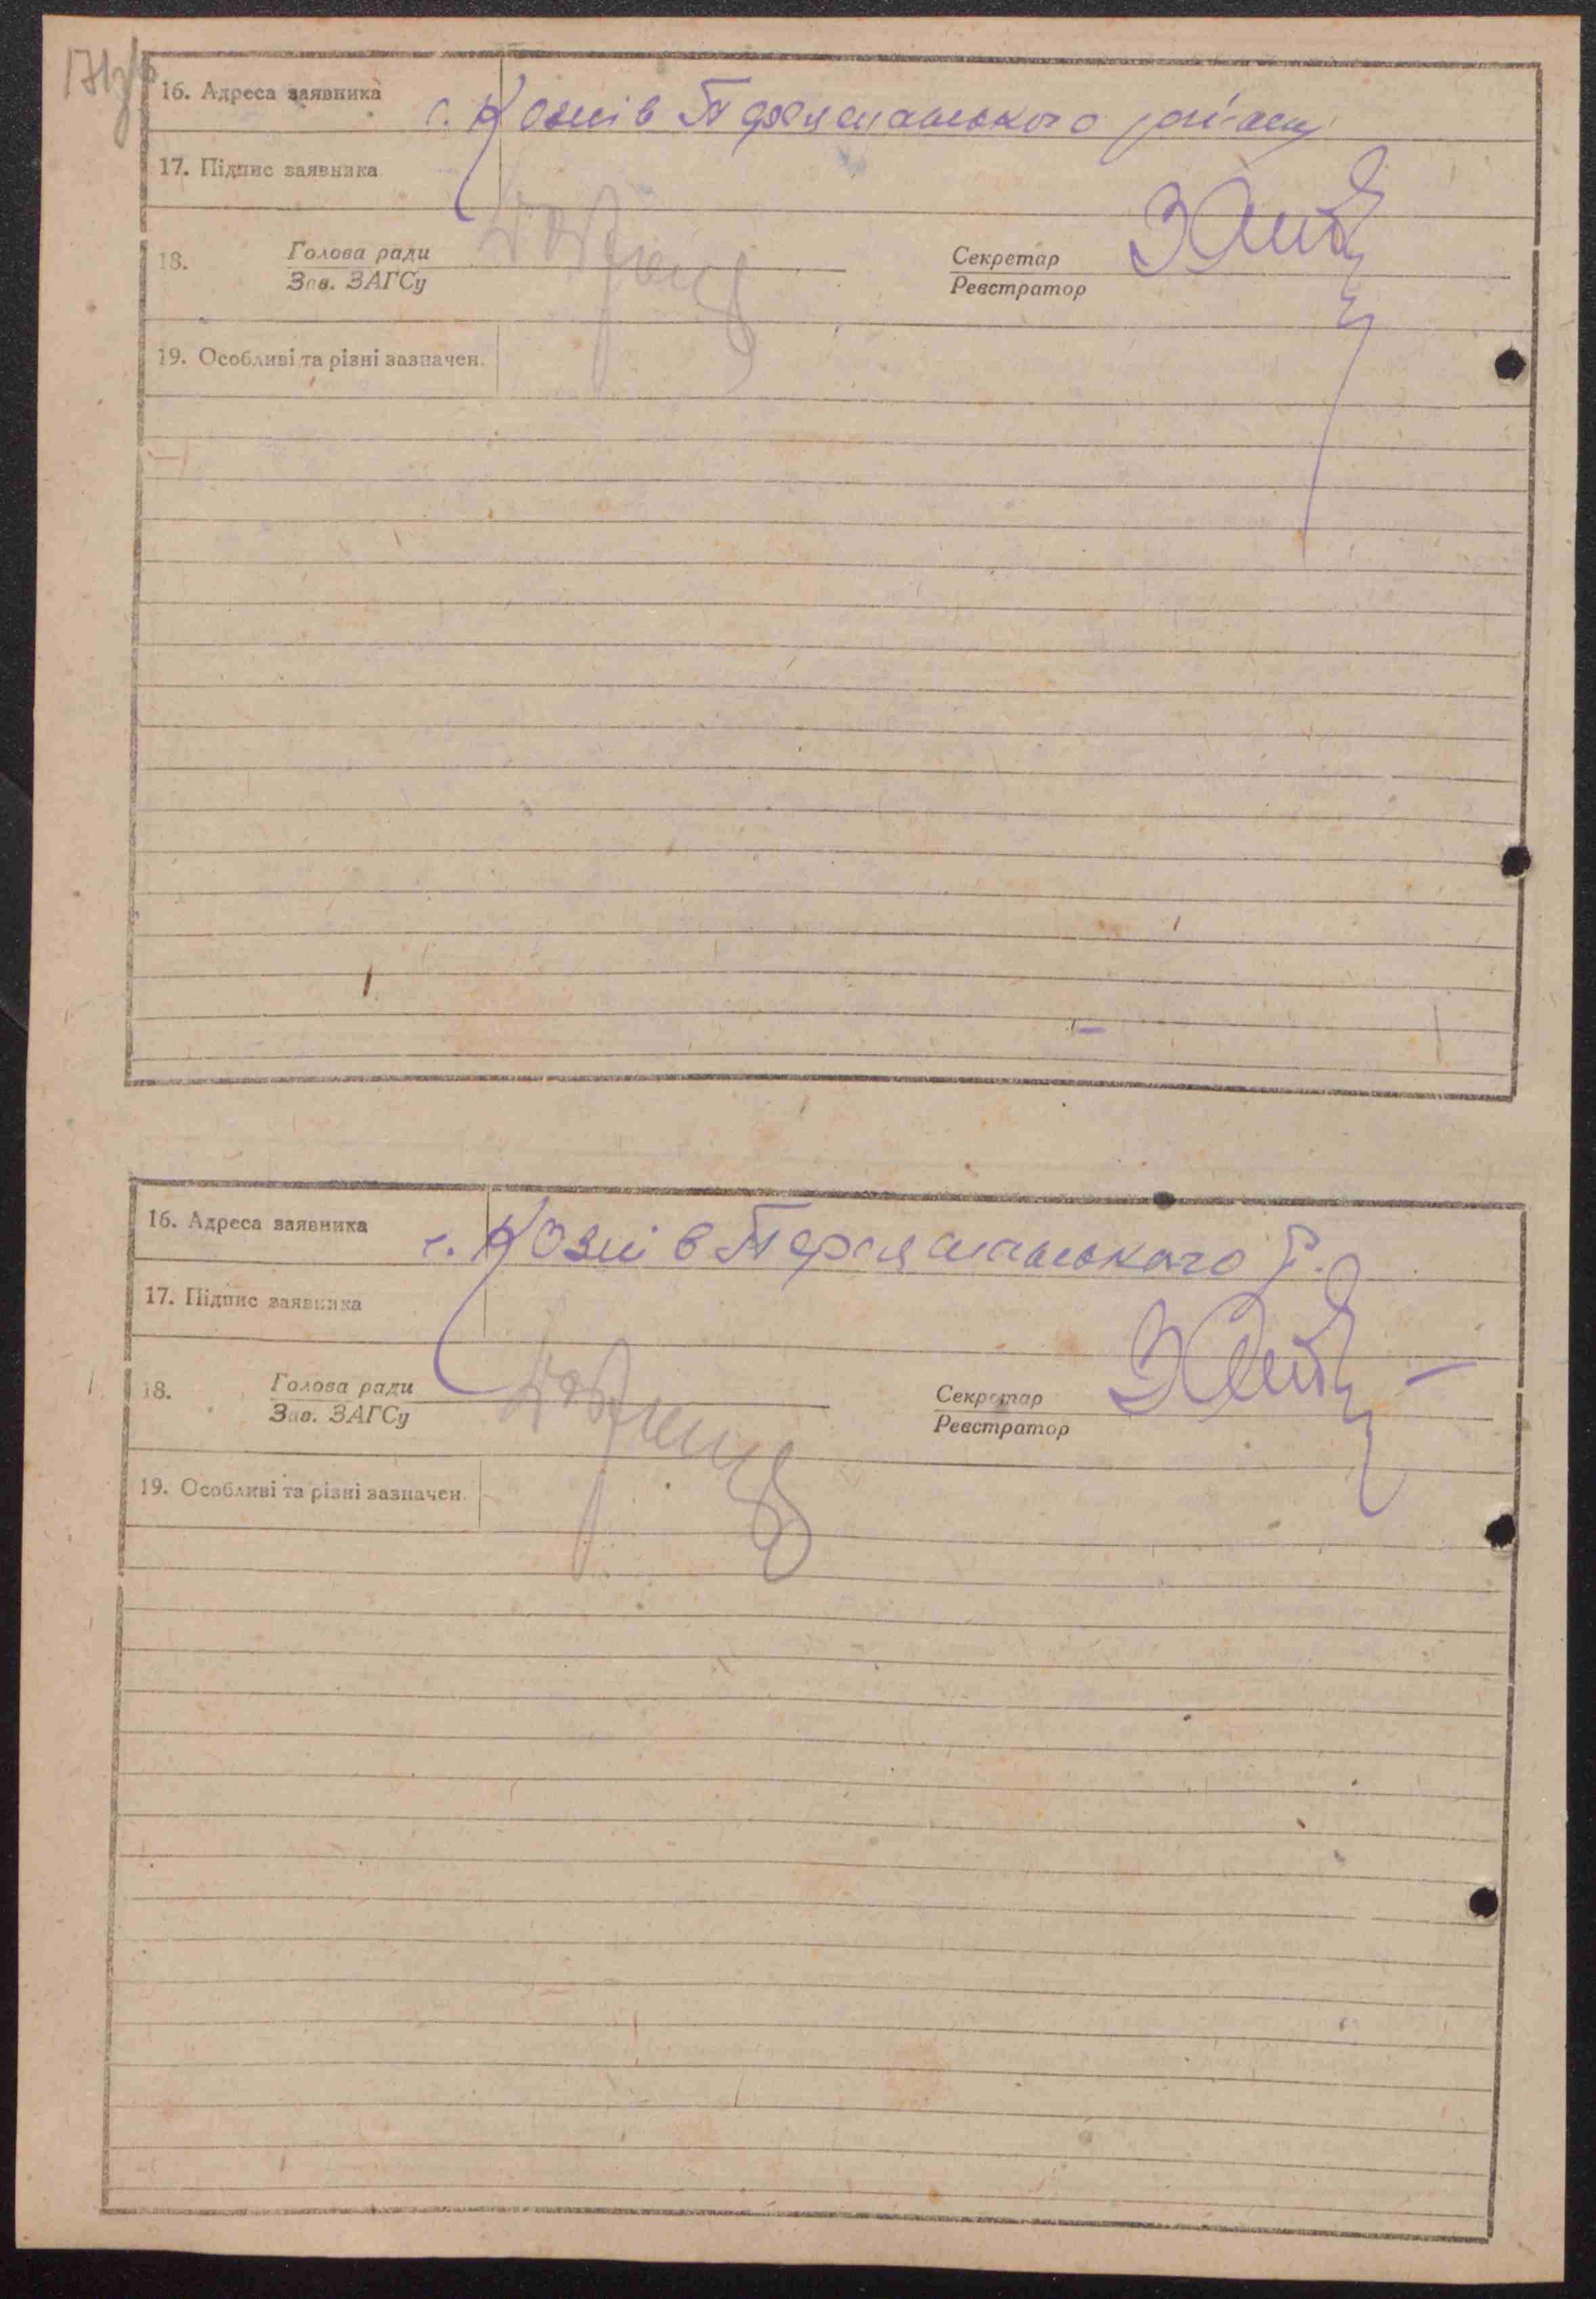 171зв
16. Адреса заявника с. Козлів Переяславського району
17. Підпис заявника
18. Голова ради
Зав. ЗАГСу
Секретар
Реєстратор
19. Особливі та різні зазначен.
16. Адреса заявника с. Козлів Переяславського р.
17. Підпис заявника
18. Голова ради
Зав. ЗАГСу
Секретар
Реєстратор
19. Особливі та різні зазначен.